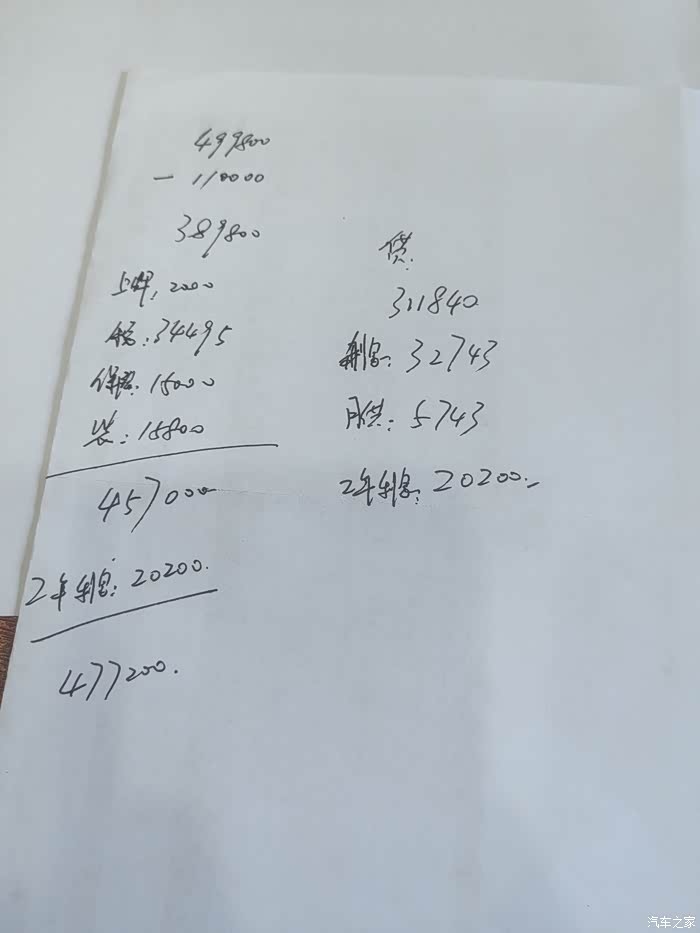 499800
- 110000
389800
上牌, 2000
税: 34495
保险: 15000
装: 15800
457000
2年利息: 20200.
477200.
贷:
311840
利息: 32743
月供: 5743
2年利息: 20200.-
汽车之家